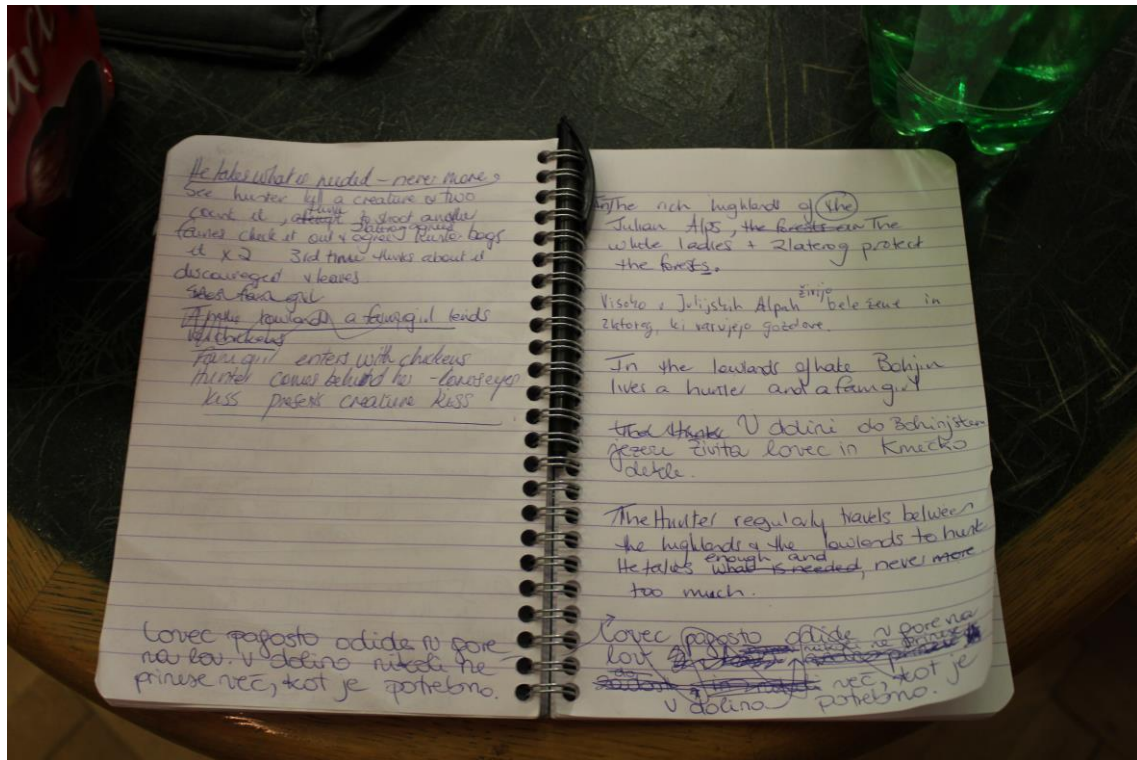 He takes what is needed – never more.
See hunter kill a creature or two
count it, to shoot another
fairies check it out & agrees hunter bags
it x 2 3rd time thinks about it
discouraged & leaves
farm girl
lowlands a farmgirl tends
chickens
Farmgirl enters with chickens
Hunter comes behind her -
kiss presents creature kiss
Lovec pogosto odide v gore
na lov. V dolino nikoli ne
prinese več, kot je potrebno.
In the rich highlands of the
Julian Alps, the forests The
white ladies + Zlaterog protect
the forests.
Visoko v Julijskih Alpah živijo bele žene in
zlatorog, ki varujejo gozdove.
In the lowlands of Lake Bohjin
lives a hunter and a farmgirl
V dolini do Bohinjskem
jezeru živita lovec in kmečko
dekle.
The Hunter regularly travels between
the highlands & the lowlands to hunt.
He takes what is needed enough and, never more
too much.
Lovec pogosto odide v gore na
lov nikoli ne prinese
več, kot je
v dolino potrebno.